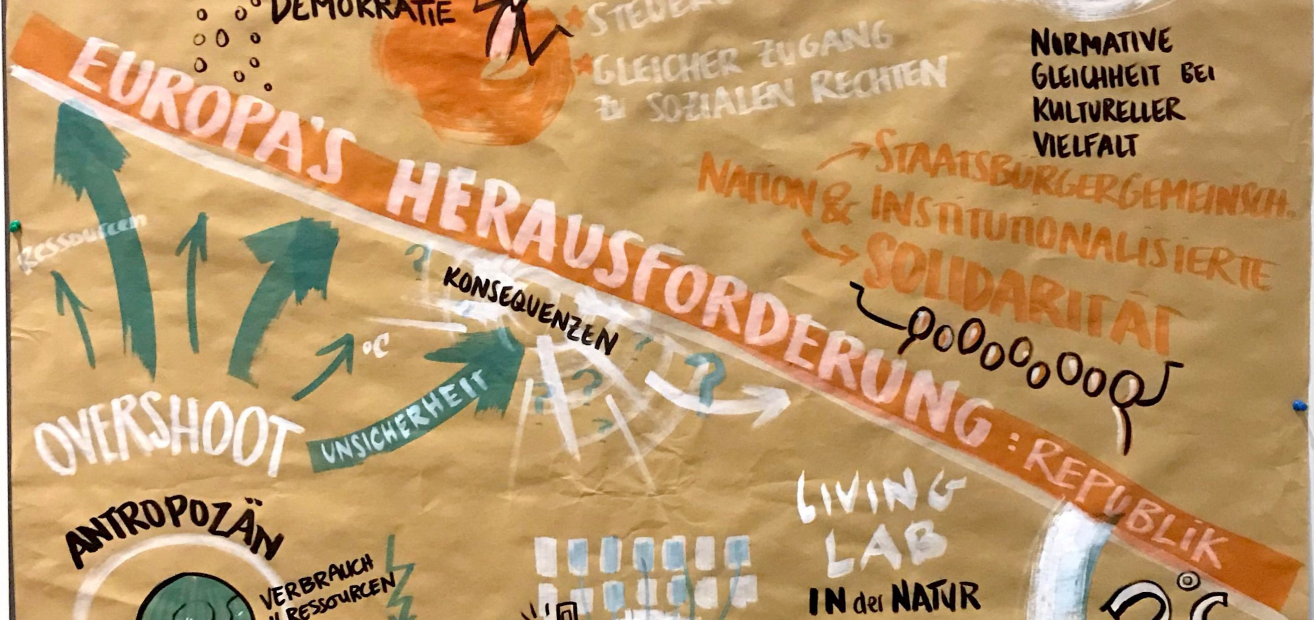 DEMOKRATIE
GLEICHER ZUGANG
ZU SOZIALEN RECHTEN
NORMATIVE
GLEICHHEIT BEI
KULTURELLER
VIELFALT
EUROPA'S HERAUSFORDERUNG: REPUBLIK
STAATSBÜRGERGEMEINSCH.
NATION & INSTITUTIONALISIERTE
SOLIDARITÄT
Ressourcen
? KONSEQUENZEN
°C
? ? ? ? ?
UNSICHERHEIT
OVERSHOOT
ANTROPOZÄN
VERBRAUCH
RESSOURCEN
LIVING
LAB
IN der NATUR